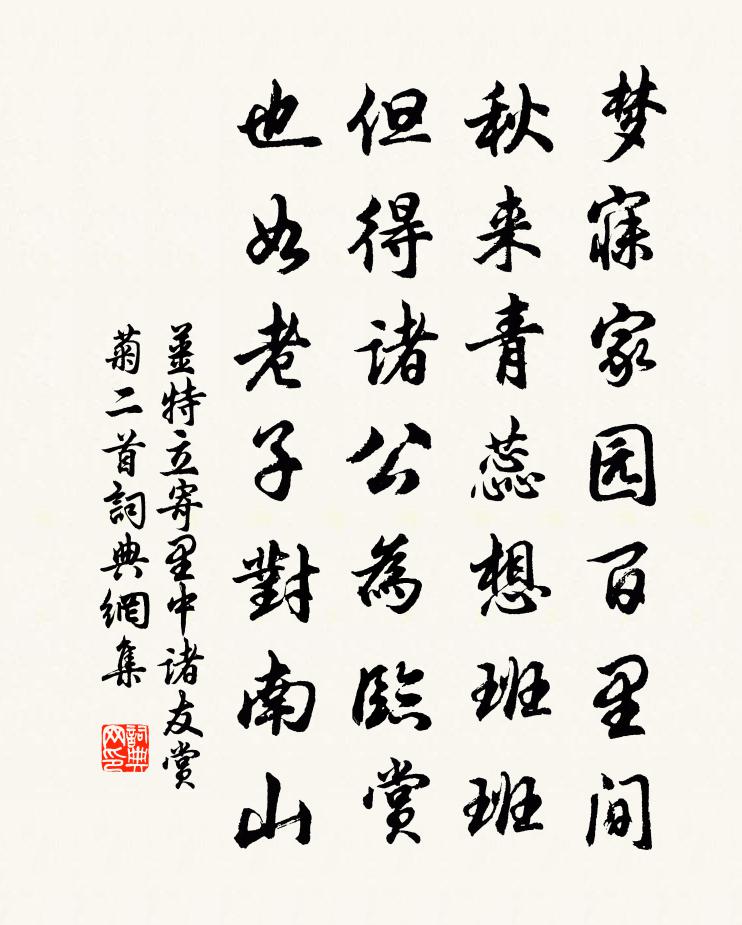 梦寐家园百里间
秋来青蕊想班班
但得诸公為臨赏
也如老子對南山
姜特立寄里中诸友赏
菊二首詞典網集
詞典网印